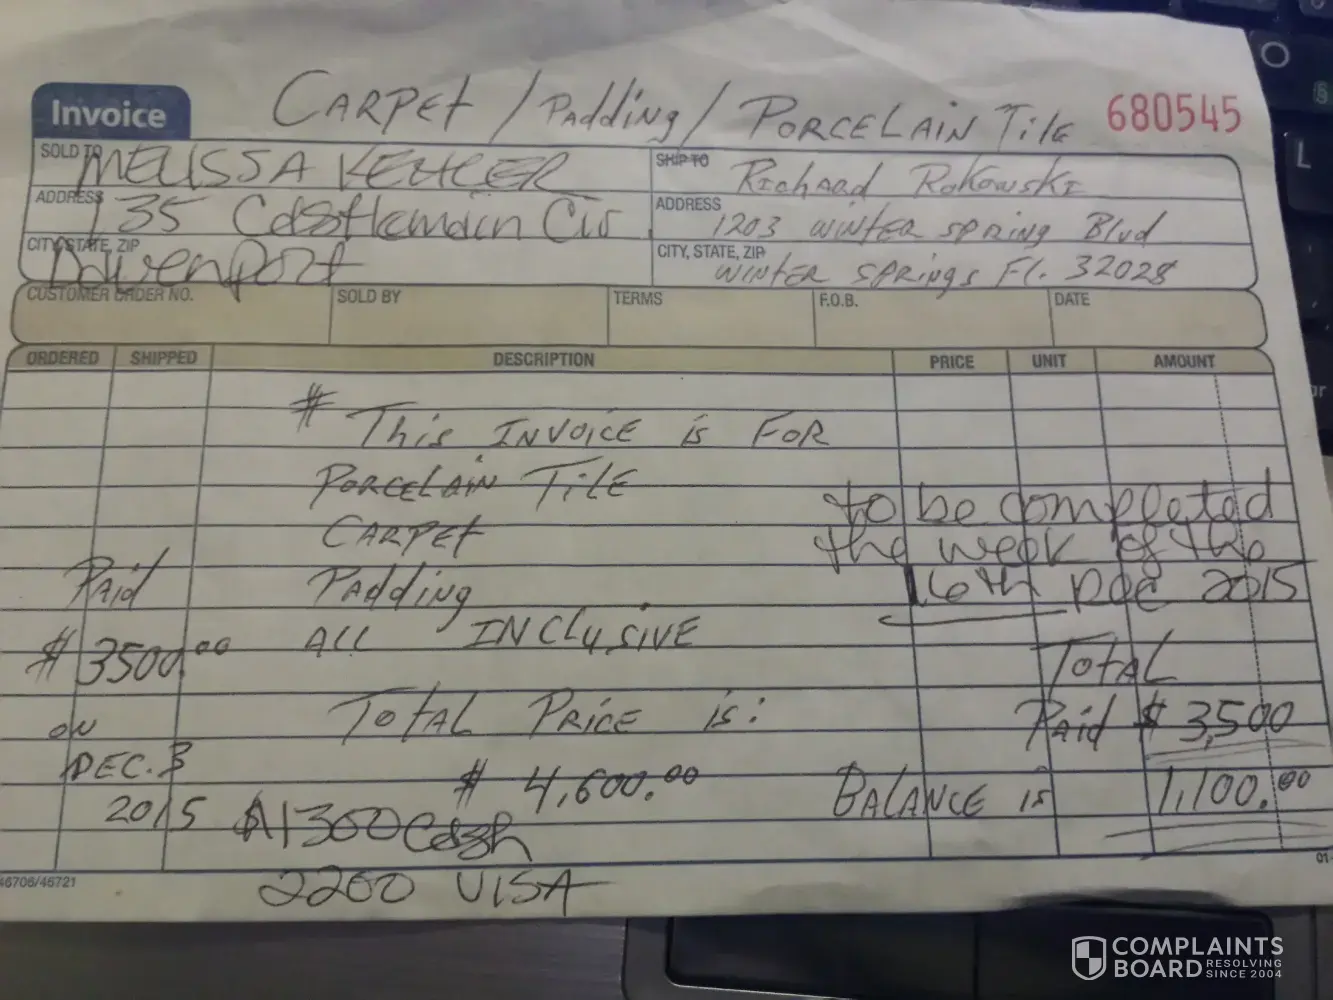 CARPET / PADDING / PORCELAIN TILE
Invoice
680545
SOLD TO MELISSA KEHLER
SHIP TO Richard Rokowski
ADDRESS 135 Castlemain Cir
ADDRESS 1203 WINTER SPRING Blvd
CITY, STATE, ZIP Davenport
CITY, STATE, ZIP WINTER SPRINGS Fl. 32028
CUSTOMER ORDER NO. SOLD BY TERMS F.O.B. DATE
ORDERED SHIPPED DESCRIPTION PRICE UNIT AMOUNT
# This INVOICE is FOR
PORCELAIN TILE
CARPET
PADDING
ALL INCLUSIVE
TOTAL PRICE is:
$ 4,600.00
to be completed
the week of the
16th Dec 2015
Paid
$ 3500.00
ON
DEC. 3
2015
TOTAL
Paid $ 3,500
BALANCE is 1,100.00
$1300 Cash
2200 VISA
46706/46721
01-
COMPLAINTS
BOARD RESOLVING
SINCE 2004
O
L